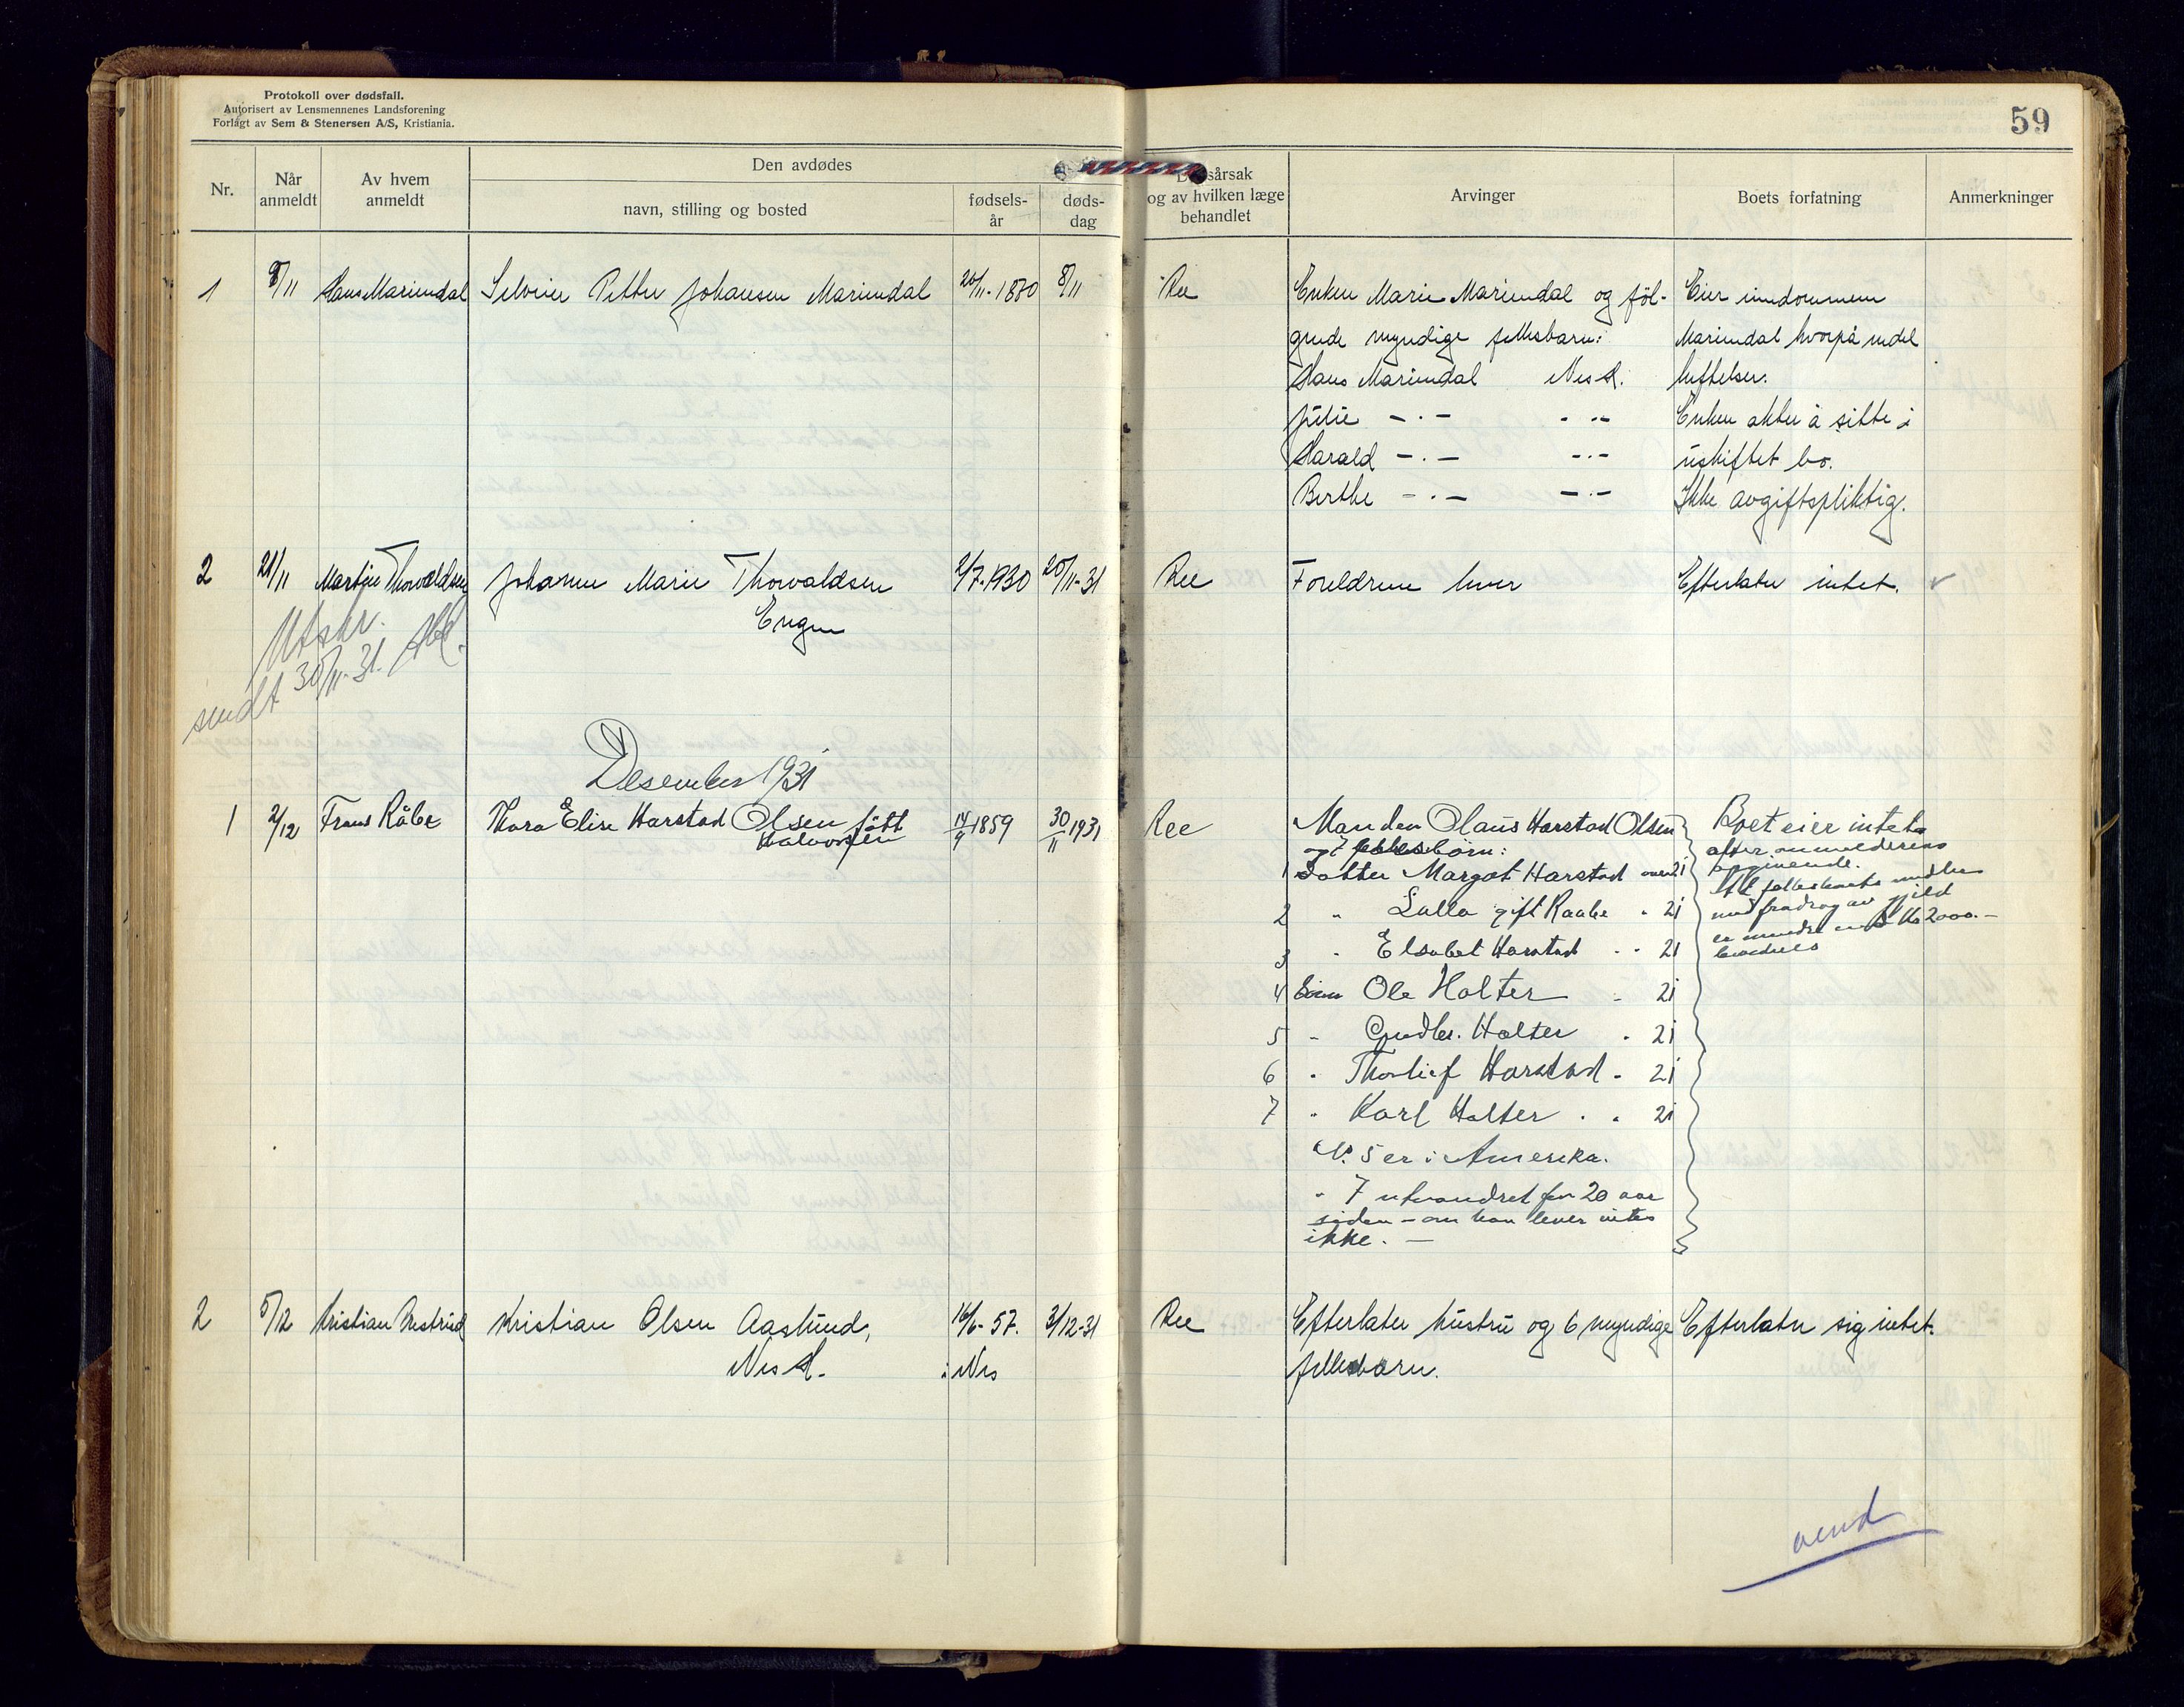 Protokoll over dødsfall.
Autorisert av Lensmennenes Landsforening
Forlagt av Sem & Stenersen A/S, Kristiania.
59
Nr.
Når anmeldt
Av hvem anmeldt
Den avdødes
navn, stilling og bosted
fødselsår
dødsdag
og av hvilken læge behandlet
Arvinger
Boets forfatning
Anmerkninger
1 8/11 Hans Mariendal Petter Johansen Mariendal 20/11-1880 8/11 Ree Enken Marie Mariendal og föl- Eier eiendommen
gende myndige fellesbarn: Mariendal hvorpå endel
Hans Mariendal Nes H. heftelser.
Julie — . — - -- Enken akter å sitte i
Harald — . — — . — uskiftet bo.
Berthe — . — — . — Ikke avgiftspliktig.
2 21/11 Martin Thorvaldsen Johanne Marie Thorvaldsen 2/7-1930 20/11-31 Ree Foreldrene lever Efterlater intet.
Engen
Utskr.
sendt 30/11-31.
Desember 1931
1 2/12 Frans Råbe Thora Elise Harstad Olsen født 14/9 1859 30/11 1931 Ree Manden Olaus Harstad Olsen Boet eier intet
Halvorsen og 7 fellesbörn: efter anmelderens
1 Datter Margot Harstad over 21 opgivende.
2 " Lalla gift Raabe " 21 med fradrag av gjeld
3 " Elsabet Harstad " " 21 er mindre end kr 2000.-
4 Sönn Ole Holter " 21
5 " Gudbr. Holter " 21
6 " Thorleif Harstad " 21
7 " Karl Holter " " 21
N. 5 er i Amerika.
" 7 utvandret for 20 aar
siden — om han lever vites
ikke. —
2 5/12 Kristian Kristian Olsen Aaslund, 16/6-57. 3/12-31 Ree Efterlater hustru og 6 myndige Efterlater sig intet.
Nes H. i Nes fellesbarn.
vend